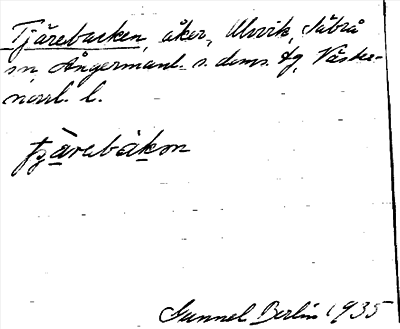 Tjärebacken, åker, Ulvvik, Säbrå
sn, Ångermanl. s. doms. tg, Väster-
norrl. l.
tjärebäkon
Gunnel Berlin 1935